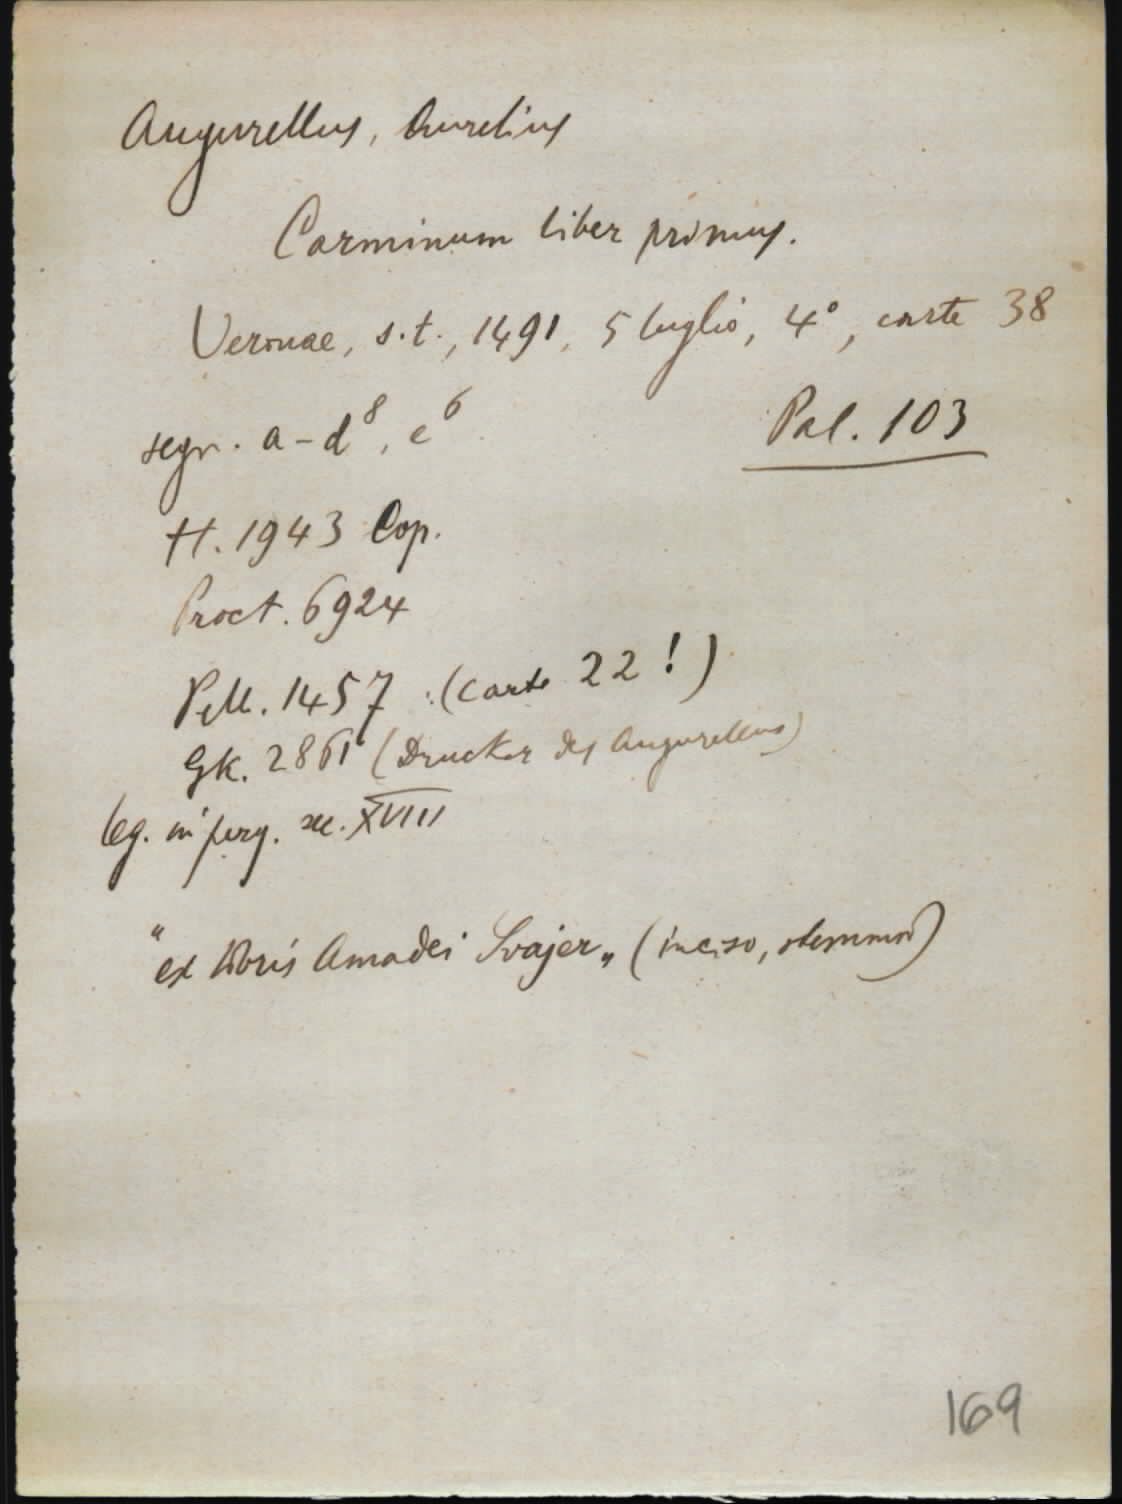 Augurellus, Aurelius
Carminum liber primus.
Veronae, s.t., 1491, 5 luglio, 4°, carte 38
segn. a-d⁸, e⁶
Pal. 103
H. 1943 Cop.
Proct. 6924
Pell. 1457 (carte 22!)
GK. 2861 (Drucker des Augurellus)
leg. in perg. sec. XVIII
"ex libris Amadei Svajer„ (inciso, stemma)
169